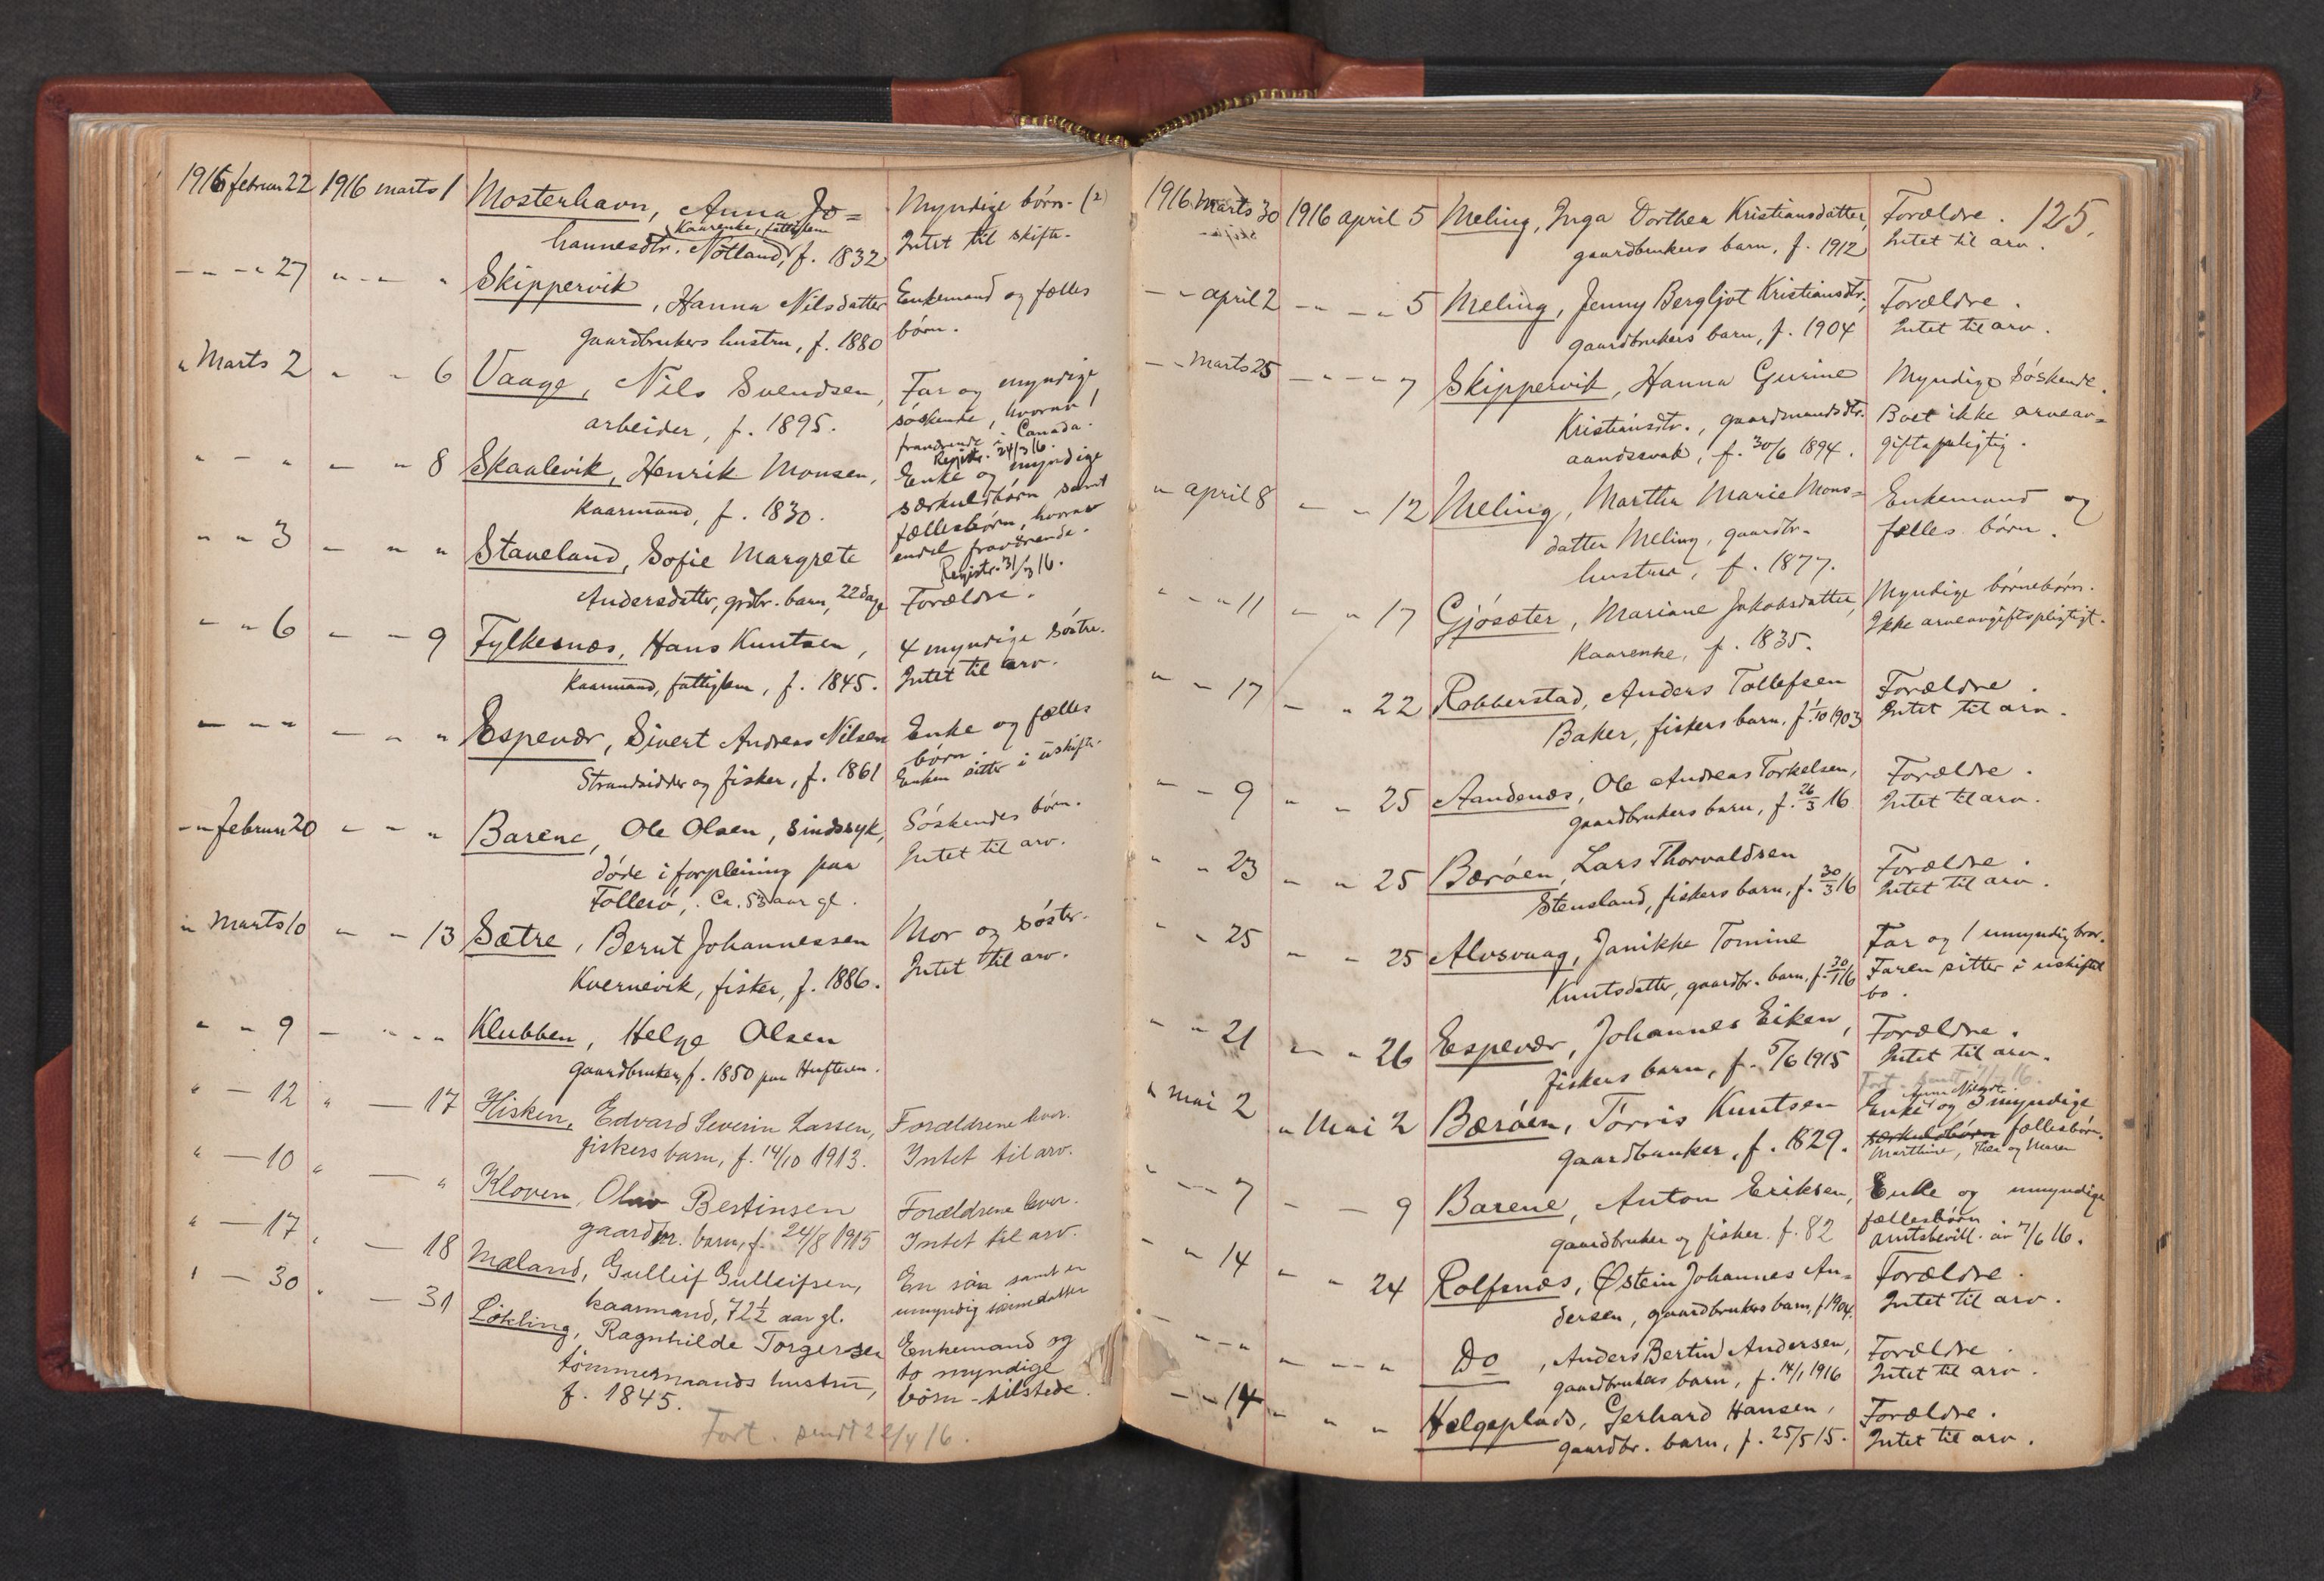 1916 februar 22 1916 marts 1 Mosterhavn, Anna Jo= Myndige børn. (2)
Kaarenke, fattiglem
hannesdtr. Notland, f. 1832 Intet til skifte.
— „ — „ 27 „ — „ — „ Skippervik, Hanna Nilsdatter Enkemand og fælles
gaardbrukers hustru, f. 1880 børn.
„ Marts 2 „ — „ 6 Vaage, Nils Svendsen, Far og myndige
arbeider, f. 1895. søskende, hvorav 1
fraværende i Canada.
Registr. 24/3 16.
„ — „ — „ 8 Skaalevik, Henrik Monsen, Enke og myndige
kaarmand, f. 1830. særkuldbørn samt
fællesbørn, hvorav
endel fraværende.
Registr. 31/3 16.
„ „ 3 — „ „ Staveland, Sofie Margrete
Andersdatter, grdbr. barn, 22 dage Forældre.
„ „ 6 — — 9 Fylkesnæs, Hans Knutsen, 4 myndige søstre.
kaarmand, fattiglem, f. 1845. Intet til arv.
— „ — „ — „ „ Espevær, Sivert Andreas Nilsen Enke og fælles
børn.
Strandsidder og fisker, f. 1861 Enken sitter i uskifte.
— „ februar 20 „ — „ Barene, Ole Olsen, sindssyk, Søskendes børn.
døde i forpleining paa Intet til arv.
Follesø, Ca. 53 aar gl.
„ Marts 10 „ — 13 Sætre, Bernt Johannessen Mor og søster.
Kvernevik, fisker, f. 1886. Intet til arv.
„ „ 9 — „ „ „ Klubben, Helge Olsen
gaardbruker, f. 1850 paa Huftøren.
„ — 12 „ — 17 Hisken, Edvard Severin Larsen, Forældrene lever.
fiskers barn, f. 14/10 1913. Intet til arv.
„ — 10 „ — „ Kloven, Olav Bertinsen Forældrene lever.
gaardbr. barn, f. 24/8 1915 Intet til arv.
„ — 17 „ — 18 Mæland, Gulleif Gulleifsen, En søn samt en
kaarmand, 72½ aar gl. umyndig sønnedatter
„ — 30 „ — 31 Løkling, Ragnhilde Torgersen Enkemand og
tømmermands hustru, to myndige
f. 1845. børn - tilstede.
Fort. sendt 22/4 16.
125.
1916 Marts 30 1916 april 5 Meling, Inga Dorthea Kristiansdatter, Forældre.
gaardbrukers barn, f. 1912 Intet til arv.
— „ april 2 — „ — „ 5 Meling, Jenny Bergljot Kristiansdtr., Forældre.
gaardbrukers barn, f. 1904 Intet til arv.
— „ Marts 25 — „ — „ 7 Skippervik, Hanna Gurine Myndige søskende.
Kristiansdtr., gaardmandsdtr. Boet ikke arveav=
aandssvak, f. 30/6 1894. giftspligtig.
„ april 8 — „ 12 Meling, Martha Marie Mons= Enkemand og
datter Meling, gaardbr. fælles børn.
hustru, f. 1877.
„ „ „ 11 — „ 17 Gjøsæter, Mariane Jakobsdatter, Myndige børnebørn.
kaarenke, f. 1835. Ikke arveavgiftspligtigt.
„ — 17 — „ 22 Robberstad, Anders Tollefsen Forældre.
Baker, fiskers barn, f. 1/10 1903 Intet til arv.
„ — 9 „ „ 25 Aandenæs, Ole Andreas Torkelsen, Forældre.
gaardbrukers barn, f. 26/3 16 Intet til arv.
„ „ 23 — „ 25 Bærøen, Lars Thorvaldsen Forældre.
Stensland, fiskers barn, f. 30/3 16 Intet til arv.
„ „ 25 — „ 25 Alvsvaag, Janikke Tomine Far og 1 umyndig bror.
Knutsdatter, gaardbr. barn, f. 30/1 16 Faren sitter i uskiftet
bo.
„ „ 21 — „ 26 Espevær, Johannes Eiken, Forældre.
fiskers barn, f. 5/6 1915 Intet til arv.
„ Mai 2 „ Mai 2 Bærøen, Tørris Knutsen Enke og 3 myndige
gaardbruker, f. 1829. særkuldsbørn fællesbørn.
Marthine, Thea og Maren
„ — „ 7 — — 9 Barene, Anton Eriksen, Enke og umyndige
gaardbruker og fisker. f. 82 fællesbørn.
amtsbevill. av 7/6 16.
„ „ 14 — „ 24 Rolfsnæs, Østein Johannes An= Forældre.
dersen, gaardbrukers barn, f 1904. Intet til arv.
— „ — „ „ — „ — „ Do, Anders Bertin Andersen, Forældre.
gaardbrukers barn, f. 14/1 1916 Intet til arv.
— „ 14 „ „ „ Helgeplads, Gerhard Hansen, Forældre.
gaardbr. barn, f. 25/5 15. Intet til arv.